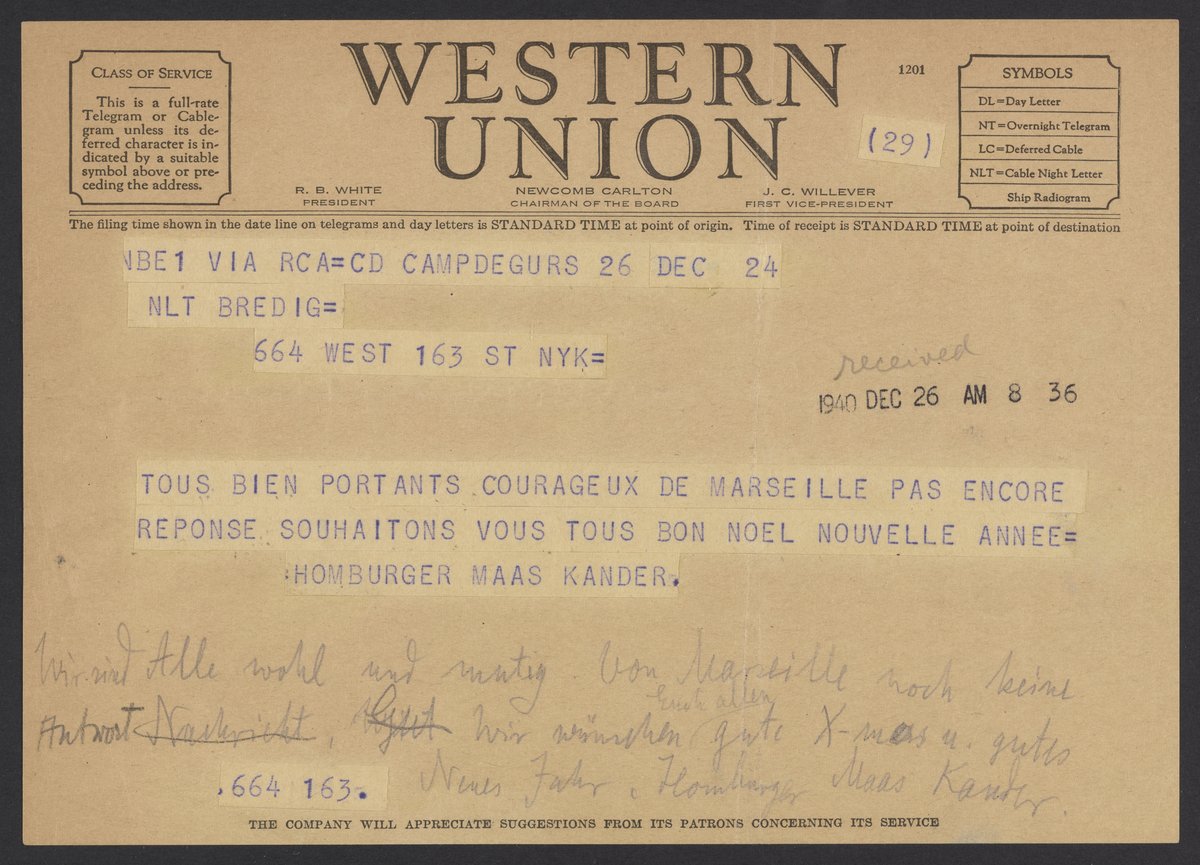 CLASS OF SERVICE
This is a full-rate
Telegram or Cable-
gram unless its de-
ferred character is in-
dicated by a suitable
symbol above or pre-
ceding the address.
WESTERN
UNION
1201
(29)
R. B. WHITE
PRESIDENT
NEWCOMB CARLTON
CHAIRMAN OF THE BOARD
J. C. WILLEVER
FIRST VICE-PRESIDENT
SYMBOLS
DL=Day Letter
NT=Overnight Telegram
LC=Deferred Cable
NLT=Cable Night Letter
Ship Radiogram
The filing time shown in the date line on telegrams and day letters is STANDARD TIME at point of origin. Time of receipt is STANDARD TIME at point of destination
NBE1 VIA RCA=CD CAMPDEGURS 26 DEC 24
NLT BREDIG=
664 WEST 163 ST NYK=
received
1940 DEC 26 AM 8 36
TOUS BIEN PORTANTS COURAGEUX DE MARSEILLE PAS ENCORE
REPONSE SOUHAITONS VOUS TOUS BON NOEL NOUVELLE ANNEE=
HOMBURGER MAAS KANDER.
Wir sind Alle wohl und mutig. Von Marseille noch keine
Euch allen
Antwort Nachricht, Wir wünschen gute X-mas u. gutes
Neues Jahr. Homburger Maas Kander.
.664 163.
THE COMPANY WILL APPRECIATE SUGGESTIONS FROM ITS PATRONS CONCERNING ITS SERVICE